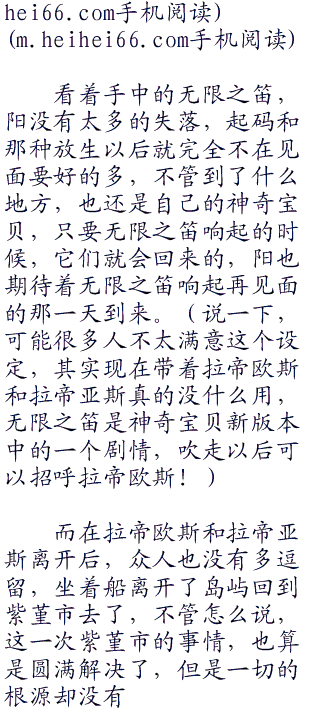 hei66.com手机阅读)
(m.heihei66.com手机阅读)
看着手中的无限之笛，
阳没有太多的失落，起码和
那种放生以后就完全不在见
面要好的多，不管到了什么
地方，也还是自己的神奇宝
贝，只要无限之笛响起的时
候，它们就会回来的，阳也
期待着无限之笛响起再见面
的那一天到来。（说一下，
可能很多人不太满意这个设
定，其实现在带着拉帝欧斯
和拉帝亚斯真的没什么用，
无限之笛是神奇宝贝新版本
中的一个剧情，吹走以后可
以招呼拉帝欧斯！）
而在拉帝欧斯和拉帝亚
斯离开后，众人也没有多逗
留，坐着船离开了岛屿回到
紫堇市去了，不管怎么说，
这一次紫堇市的事情，也算
是圆满解决了，但是一切的
根源却没有